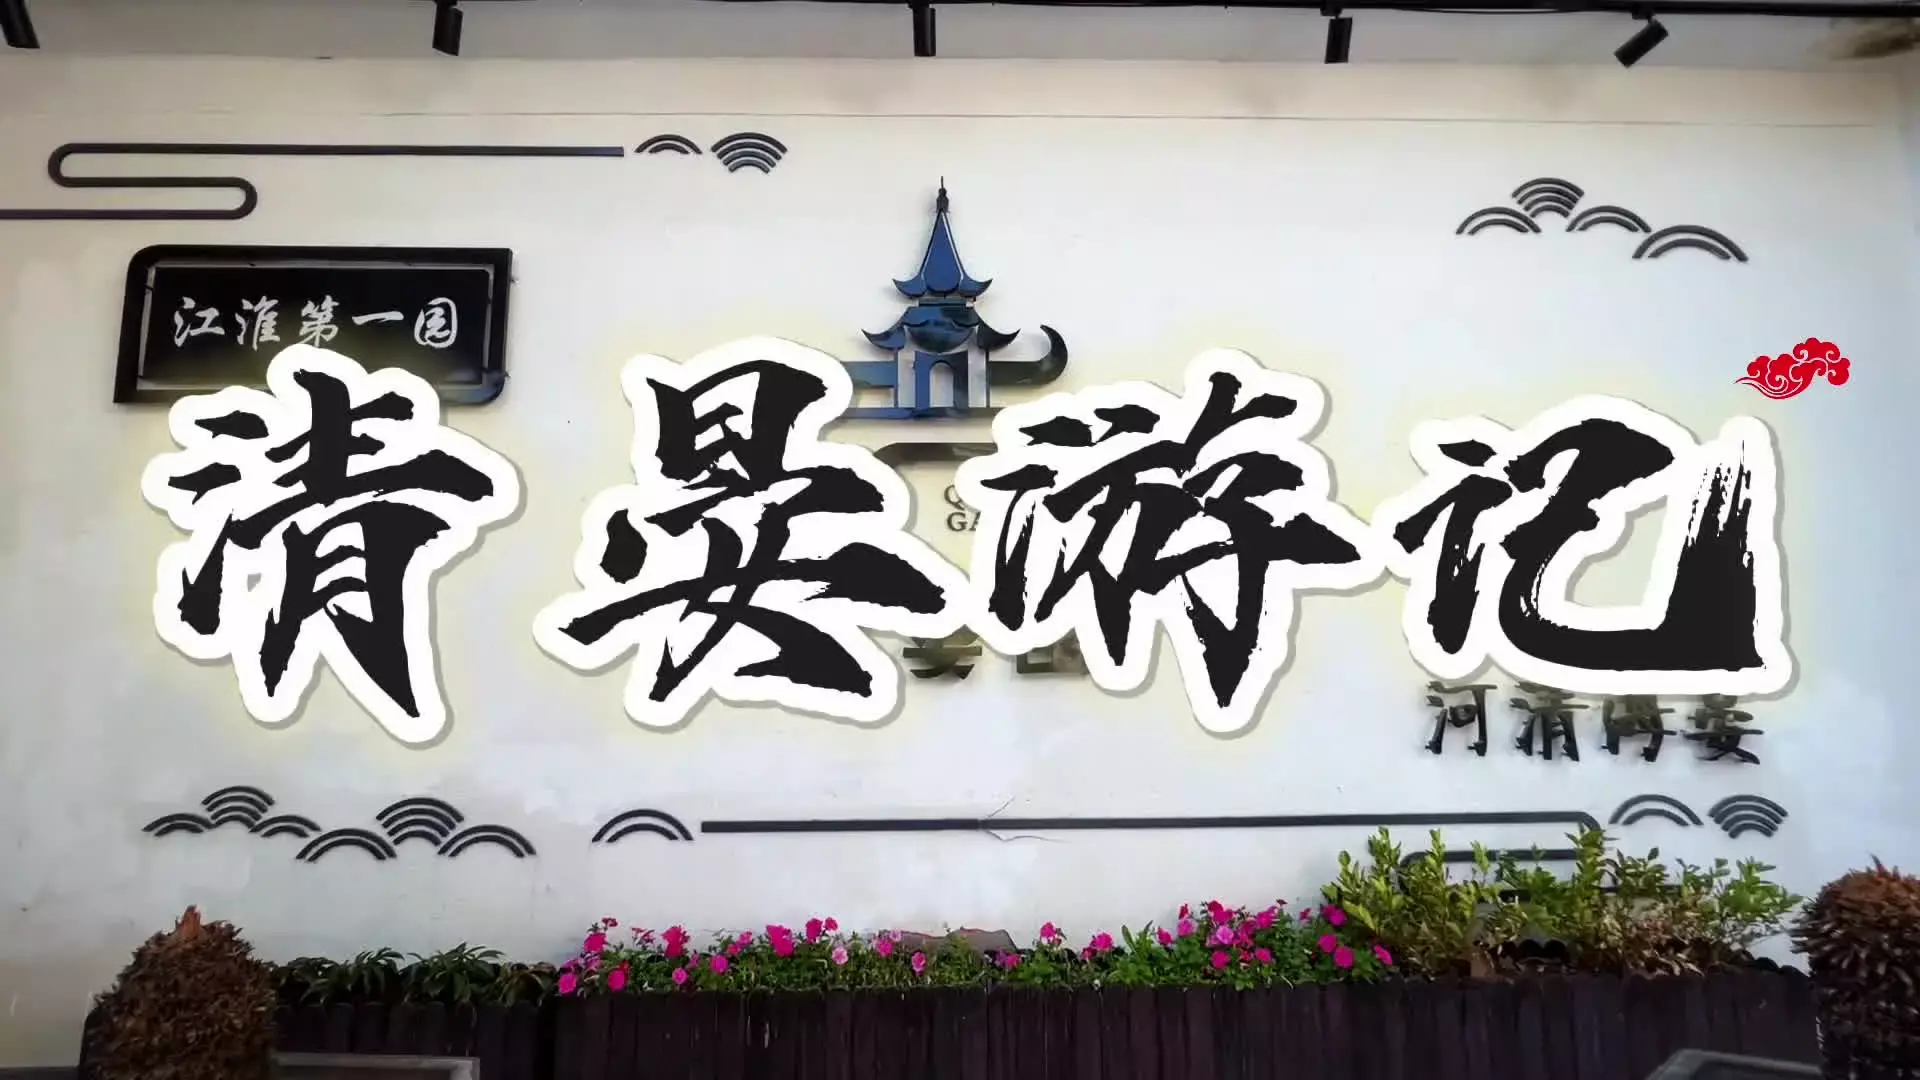 江淮第一园
清晏游记
河清海晏